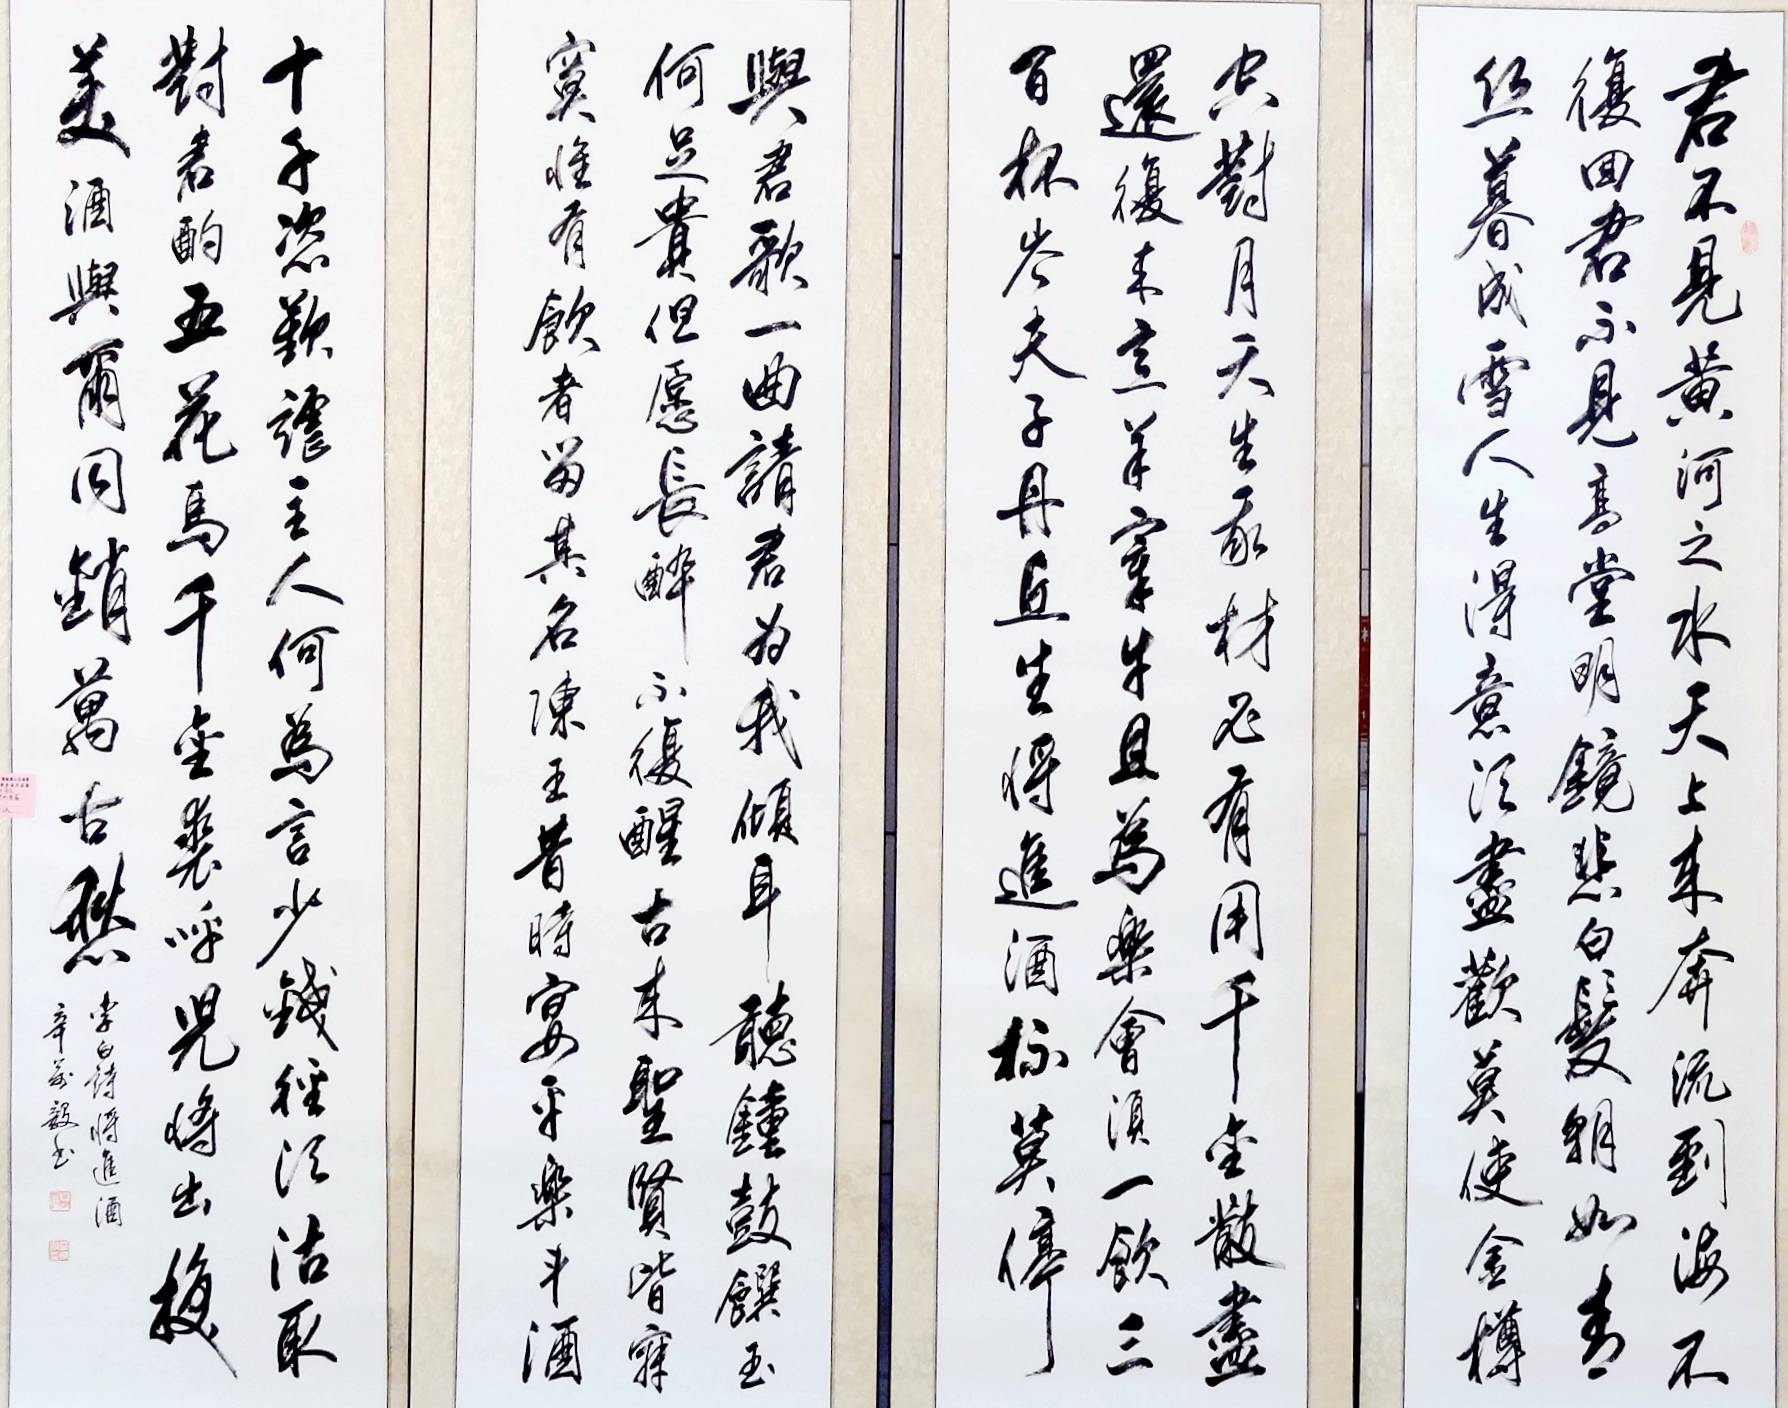 君不見黄河之水天上来奔流到海不
復回君不見高堂明鏡悲白髮朝如青
丝暮成雪人生得意須盡歡莫使金樽
空對月天生我材必有用千金散盡
還復来烹羊宰牛且為樂會須一飲三
百杯岑夫子丹丘生将進酒杯莫停
與君歌一曲請君为我傾耳聽鐘鼓饌玉
何足貴但愿長醉不復醒古来聖賢皆寂
寞惟有飲者留其名陳王昔時宴平樂斗酒
十千恣歡謔主人何為言少錢徑須沽取
對君酌五花馬千金裘呼兒将出換
美酒與爾同銷萬古愁
李白詩将進酒